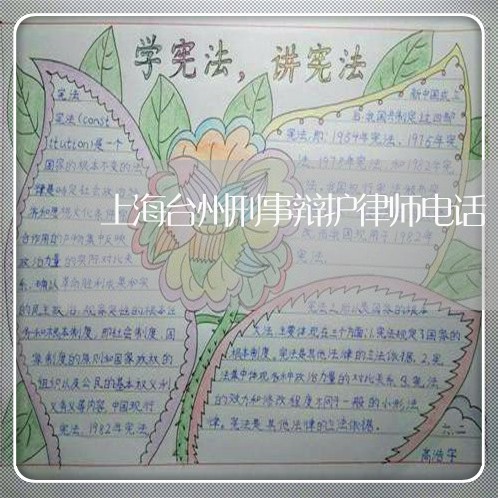 学宪法，讲宪法
宪法
宪法(const
itution)是一个
国家的根本
上海台州刑事辩护律师电话
政治力量的实际对比关
系，确认革命胜利成果和实
家制度的原则和国家政权的
组织以及公民的基本权义利
义务义等内容，中国现行
宪法，1982年宪法
新中国成立
后，我国共制定过四部
宪法，即：1954年宪法，1975年宪
法，1978年宪法，和1982年宪
宪法。
法，主要体现在三个方面，1.宪法规定了国家的
根本制度，宪法是其他法律的立法依据，2.宪
法集中体现各种政治力量的对比关系，3.宪法
的效力和修改程度不同于一般的小形法
律，宪法是其他法律的立法依据。
六.二
高浩宇